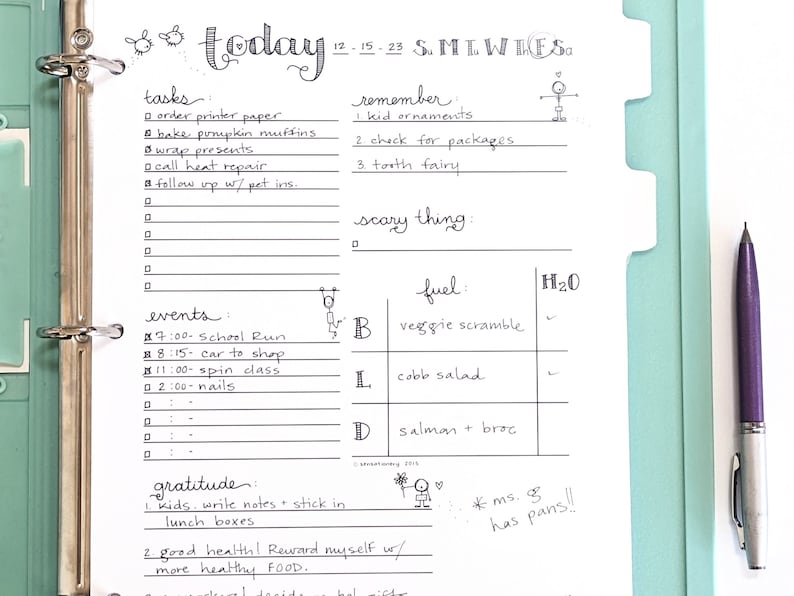 today 12-15-23 Su M Tu W Th F Sa
tasks:
order printer paper
bake pumpkin muffins
wrap presents
call heat repair
follow up w/ pet ins.
remember:
1. kid ornaments
2. check for packages
3. tooth fairy
scary thing:
events:
7:00- School Run
8:15- car to shop
11:00- spin class
2:00- nails
: -
: -
: -
: -
fuel: H2O
B veggie scramble ✓
L cobb salad ✓
D salmon + broc
© sensationery 2015
gratitude:
1. kids. write notes + stick in
lunch boxes
2. good health! Reward myself w/
more healthy FOOD.
* ms. g
has pans!!